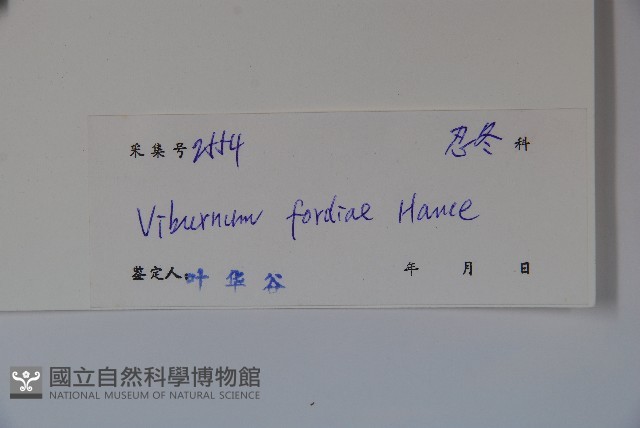 采集号 2554 忍冬 科
Viburnum fordiae Hance
鉴定人: 叶华谷 年 月 日
國立自然科學博物館
NATIONAL MUSEUM OF NATURAL SCIENCE